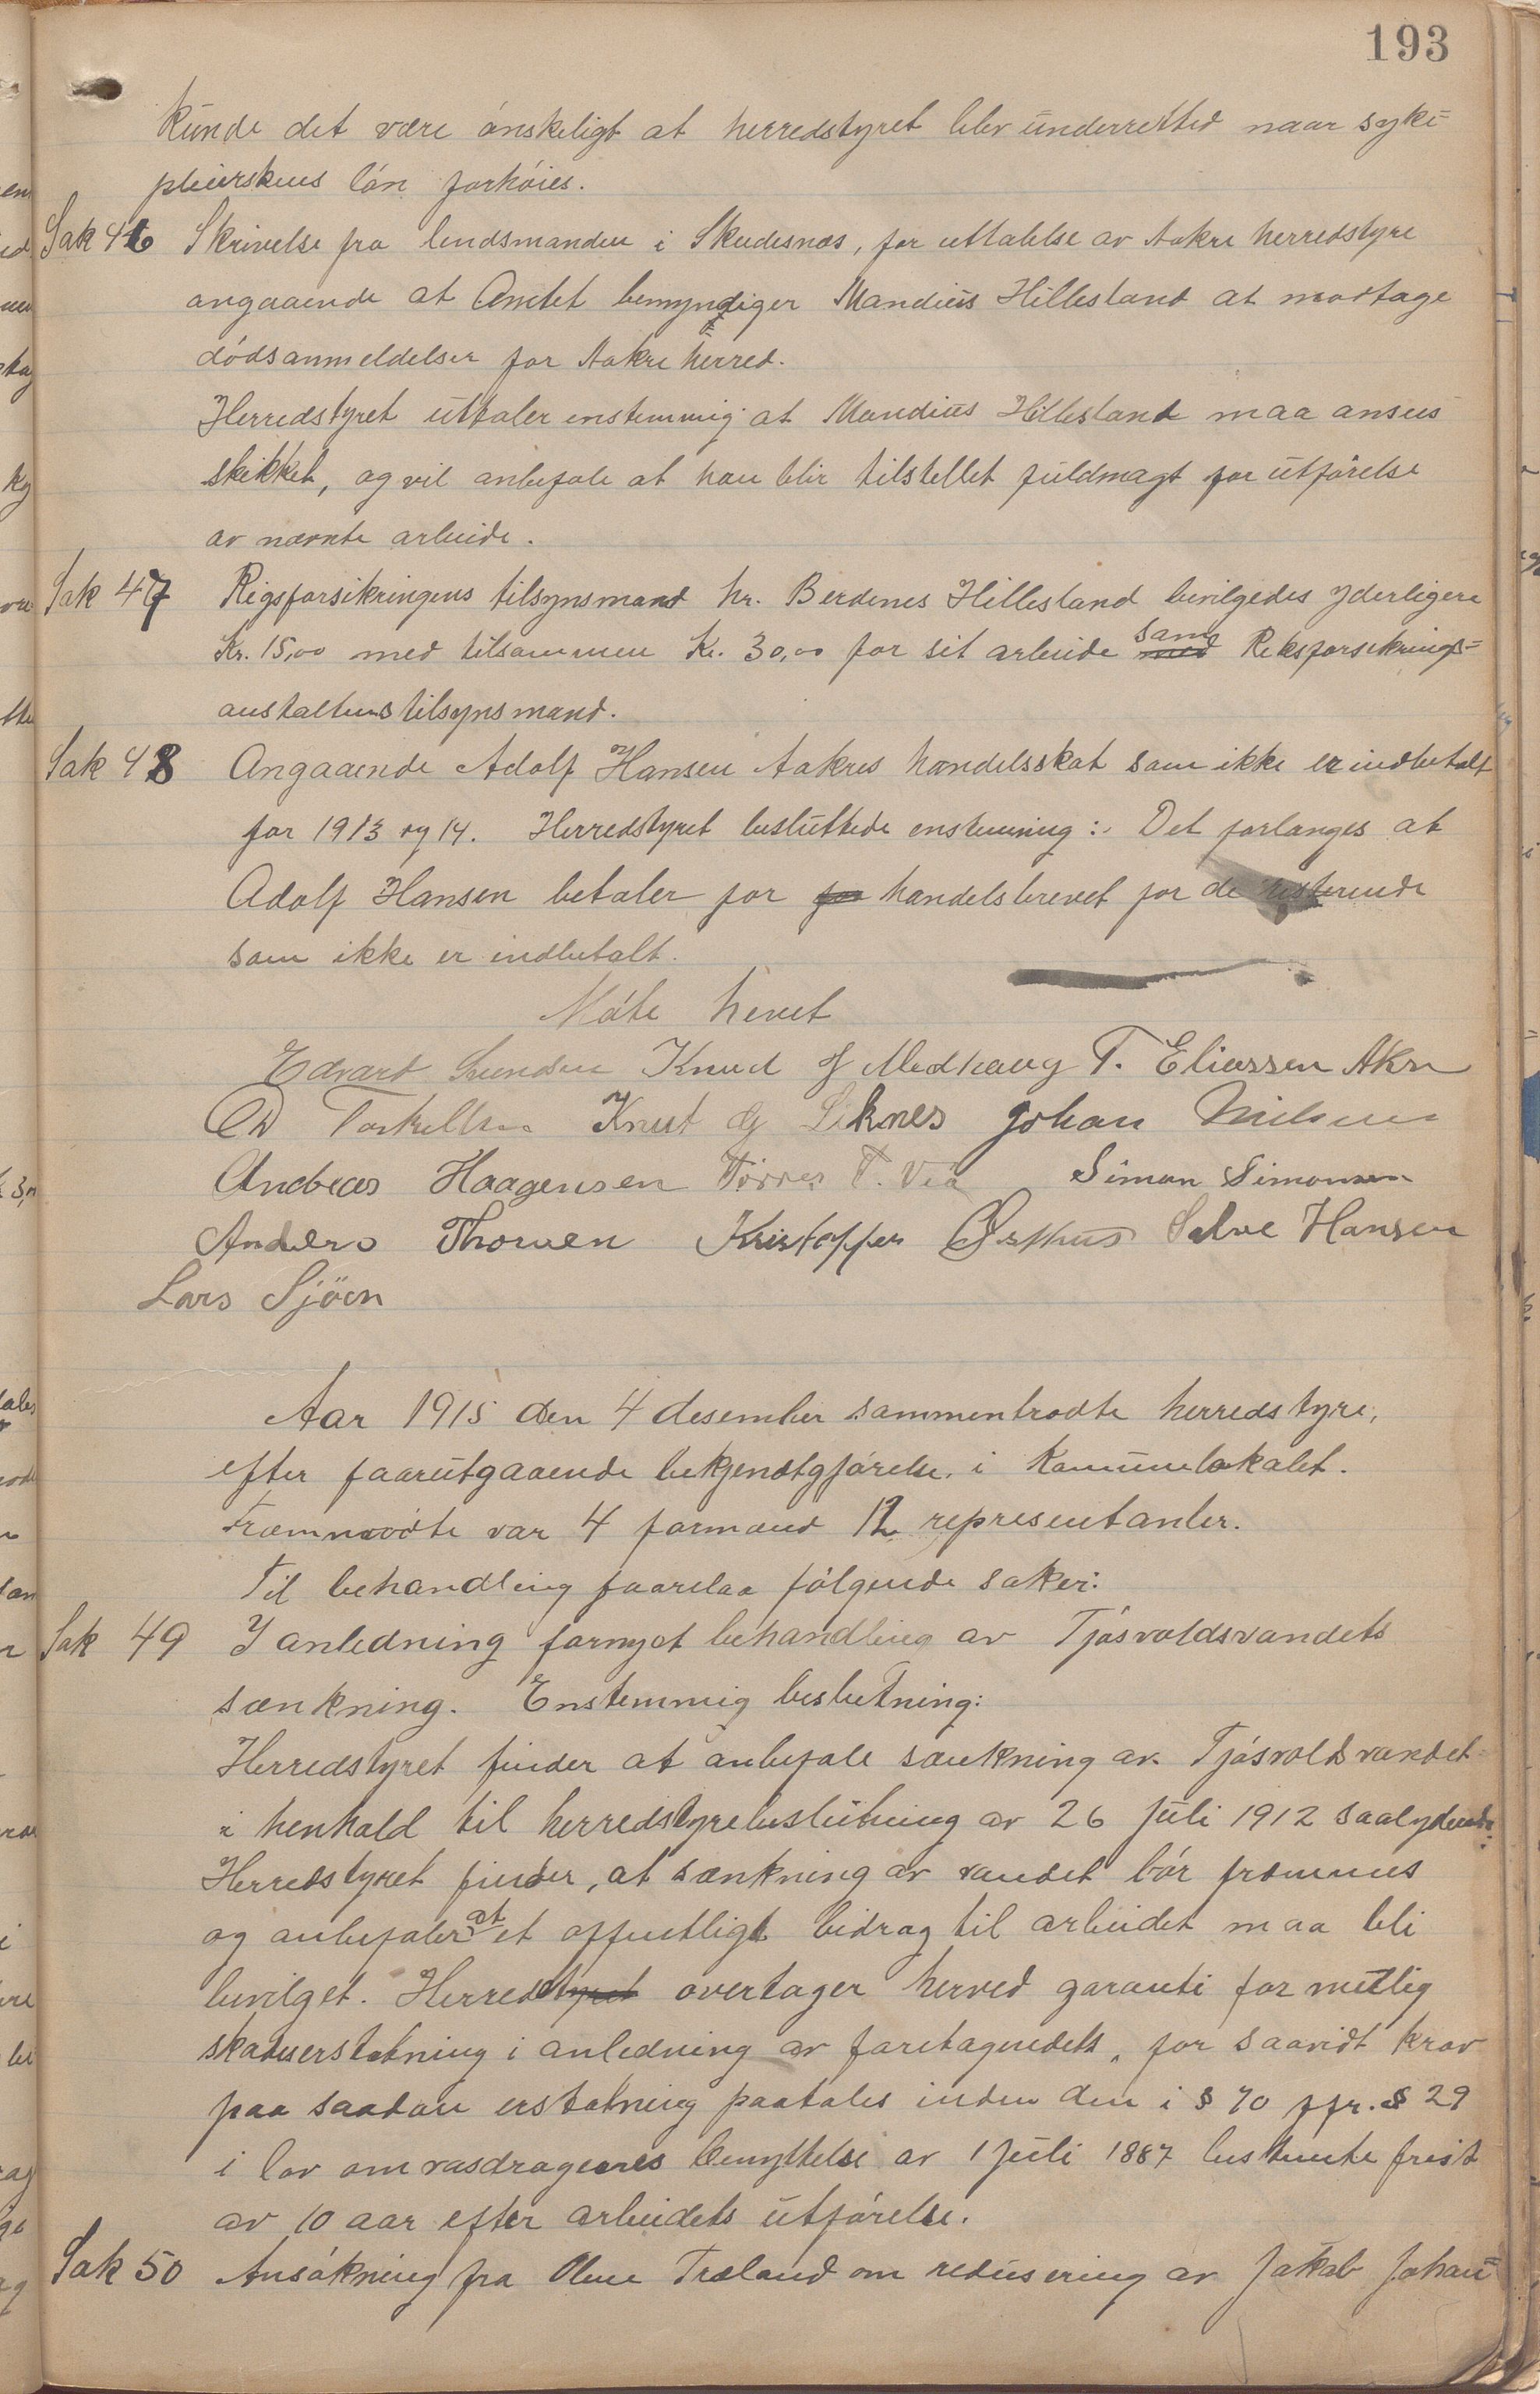 193
kunde det være ónskeligt at herredstyret blev underretted naar syke=
pleierskens lón forhóies.
Sak 46 Skrivelse fra lendsmanden i Skudesnæs, for uttalelse av Aakre herredstyre
angaaende at Amtet bemyndiger Mandius Hillesland at mottage
dódsanmeldelser for Aakre herred.
Herredstyret uttaler enstemmig at Mandius Hillesland maa ansees
skikket, og vil anbefale at han blir tilstellet fuldmagt for utfórelse
av nævnte arbeide.
Sak 47 Rigsforsikringens tilsynsmand hr. Berdines Hillesland bevilgedes yderligere
Kr. 15,00 med tilsammen Kr. 30,00 for sit arbeide som Riksforsikrings=
anstaltens tilsynsmand.
Sak 48 Angaaende Adolf Hansen Aakres handelsskat som ikke er indbetalt
for 1913 og 14. Herredstyret besluttede enstemmig:- Det forlanges at
Adolf Hansen betaler for handelsbrevet for de resterende
som ikke er indbetalt.
Móte hevet
Edvart Svendsen Knud J Medhaug T. Eliassen Akre
Torkellsen Knut G Liknes Johan Nilsen
Andreas Haagensen Tórres T. Vea Simon Simonsen
Anders Thorsen Kristoffer Østhus Salve Hansen
Lars Sjöen
Aar 1915 den 4 desember sammentrodte herredstyre,
efter faarutgaaende bekjendtgjórelse, i Kommunelokalet.
Fræmmødte var 4 formænd 12 representanter.
Til behandling faarelaa fólgende saker:
Sak 49 I anledning fornyet behandling av Tjósvoldsvandets
sænkning. Enstemmig beslutning:
Herredstyret finder at anbefale sænkning av Tjósvoldsvandet
i henhold til herredstyrebeslutning av 26 juli 1912 saalydende:
Herredstyret finder, at sænkning av vandet bór fræmmes
og anbefaler at et offentligt bidrag til arbeidet maa bli
bevilget. Herredet overtager herved garanti for mulig
skadeserstatning i anledning av foretagendets, for saavidt krav
paa saadan erstatning paatales inden den i § 70 jfr. § 29
i lov om vasdragenes benyttelse av 1 juli 1887 bestemte frist
av 10 aar efter arbeidets utfórelse.
Sak 50 Ansókning fra Olene Træland om redusering av Jakob Johan=